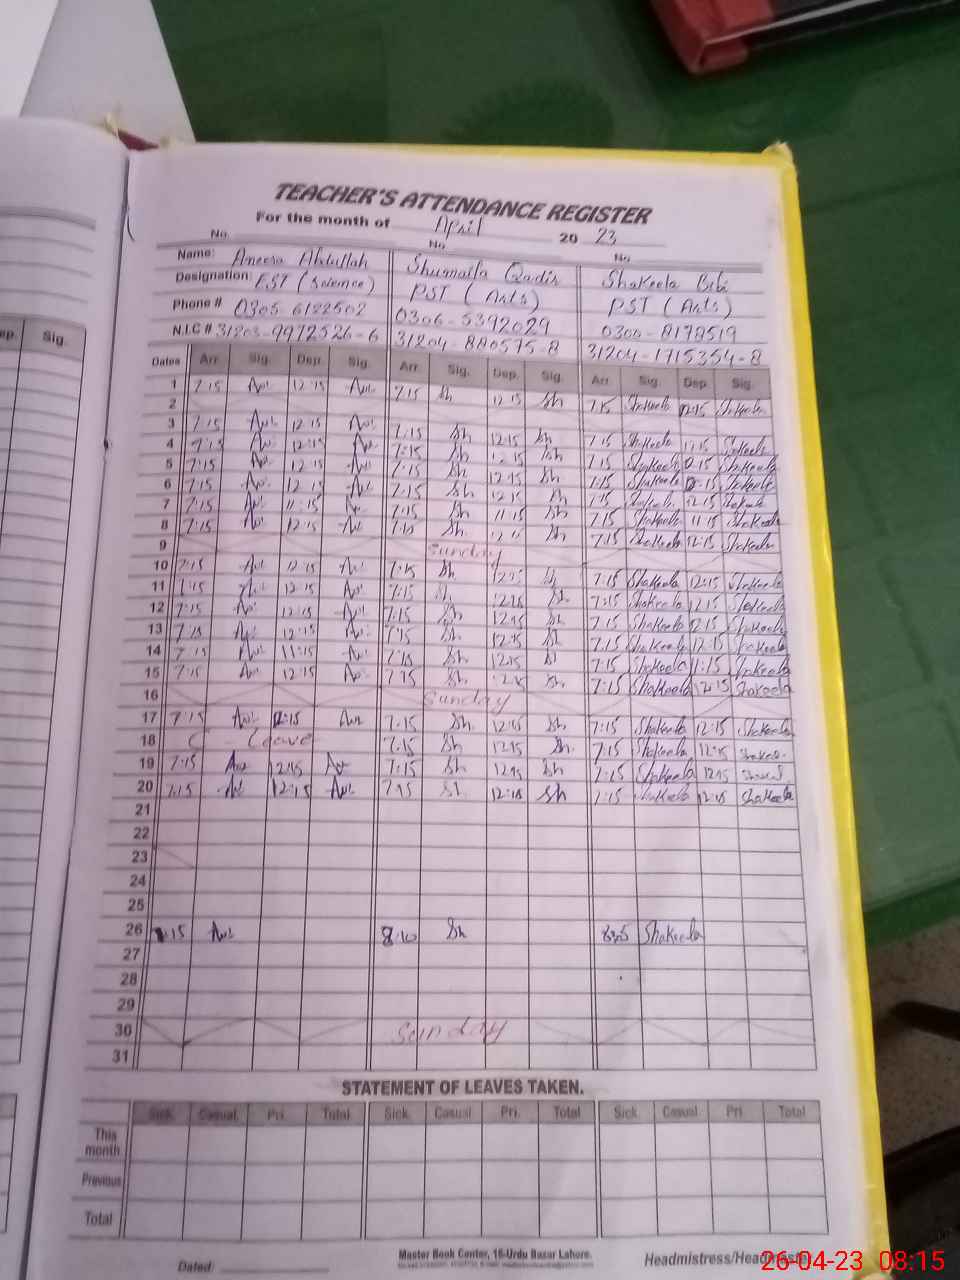 TEACHER'S ATTENDANCE REGISTER
For the month of April 20 23
No. No. No.
Name: Aneesa Abdullah Shumaila Qadir Shakeela Bibi
Designation: EST (Science) PST (Arts) PST (Arts)
Phone # 0305 6122502 0306-5392029 0300-8178519
N.I.C # 31203-9972526-6 31204-880575-8 31204-1715354-8
ep. Sig.
Dates Arr. Sig. Dep. Sig. Arr. Sig. Dep. Sig. Arr. Sig. Dep. Sig.
1 7:15 12:15 7:15 Sh 12:15 Sh 7:15 Shakeela 12:15 Shakeela
2
3 7:15 12:15 7:15 Sh 12:15 Sh 7:15 Shakeela 12:15 Shakeela
4 7:15 12:15 7:15 Sh 12:15 Sh 7:15 Shakeela 12:15 Shakeela
5 7:15 12:15 7:15 Sh 12:15 Sh 7:15 Shakeela 12:15 Shakeela
6 7:15 12:15 7:15 Sh 12:15 Sh 7:15 Shakeela 12:15 Shakeela
7 7:15 11:15 7:15 Sh 11:15 Sh 7:15 Shakeela 11:15 Shakeela
8 7:15 12:15 7:15 Sh Sh 7:15 Shakeela 12:15 Shakeela
9 Sunday
10 7:15 12:15 7:15 Sh 12:15 Sh 7:15 Shakeela 12:15 Shakeela
11 7:15 12:15 7:15 Sh 12:15 Sh 7:15 Shakeela 12:15 Shakeela
12 7:15 12:15 7:15 Sh 12:15 Sh 7:15 Shakeela 12:15 Shakeela
13 7:15 12:15 7:15 Sh 12:15 Sh 7:15 Shakeela 12:15 Shakeela
14 7:15 11:15 7:15 Sh 12:15 Sh 7:15 Shakeela 11:15 Shakeela
15 7:15 12:15 7:15 Sh 12:15 Sh 7:15 Shakeela 12:15 Shakeela
16 Sunday
17 7:15 12:15 7:15 Sh 12:15 Sh 7:15 Shakeela 12:15 Shakeela
18 C - Leave 7:15 Sh 12:15 Sh 7:15 Shakeela 12:15
19 7:15 12:15 7:15 Sh 12:15 Sh 7:15 Shakeela 12:15
20 7:15 12:15 7:15 Sh 12:15 Sh 7:15 Shakeela 12:15 Shakeela
21
22
23
24
25
26 8:10 Sh Shakeela
27
28
29
30 Sunday
31
STATEMENT OF LEAVES TAKEN.
Sick. Casual. Pri. Total Sick. Casual Pri. Total Sick. Casual Pri. Total
This month
Previous
Total
Dated
Master Book Center, 16-Urdu Bazar Lahore.
Headmistress/Headmaster
26-04-23 08:15